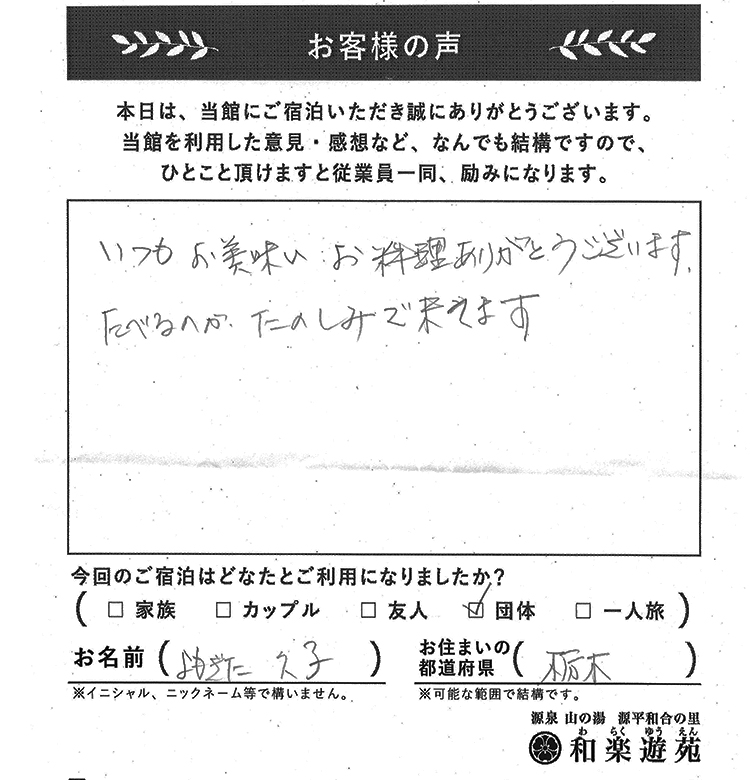 お客様の声
本日は、当館にご宿泊いただき誠にありがとうございます。
当館を利用した意見・感想など、なんでも結構ですので、
ひとこと頂けますと従業員一同、励みになります。
いつも お美味い お料理ありがとうございます。
たべるのが、たのしみで来えます
今回のご宿泊はどなたとご利用になりましたか?
( □ 家族 □ カップル □ 友人 ☑ 団体 □ 一人旅 )
お名前 ( 久子 )
※イニシャル、ニックネーム等で構いません。
お住まいの都道府県 ( 栃木 )
※可能な範囲で結構です。
源泉 山の湯 源平和合の里
わ らく ゆう えん
和楽遊苑